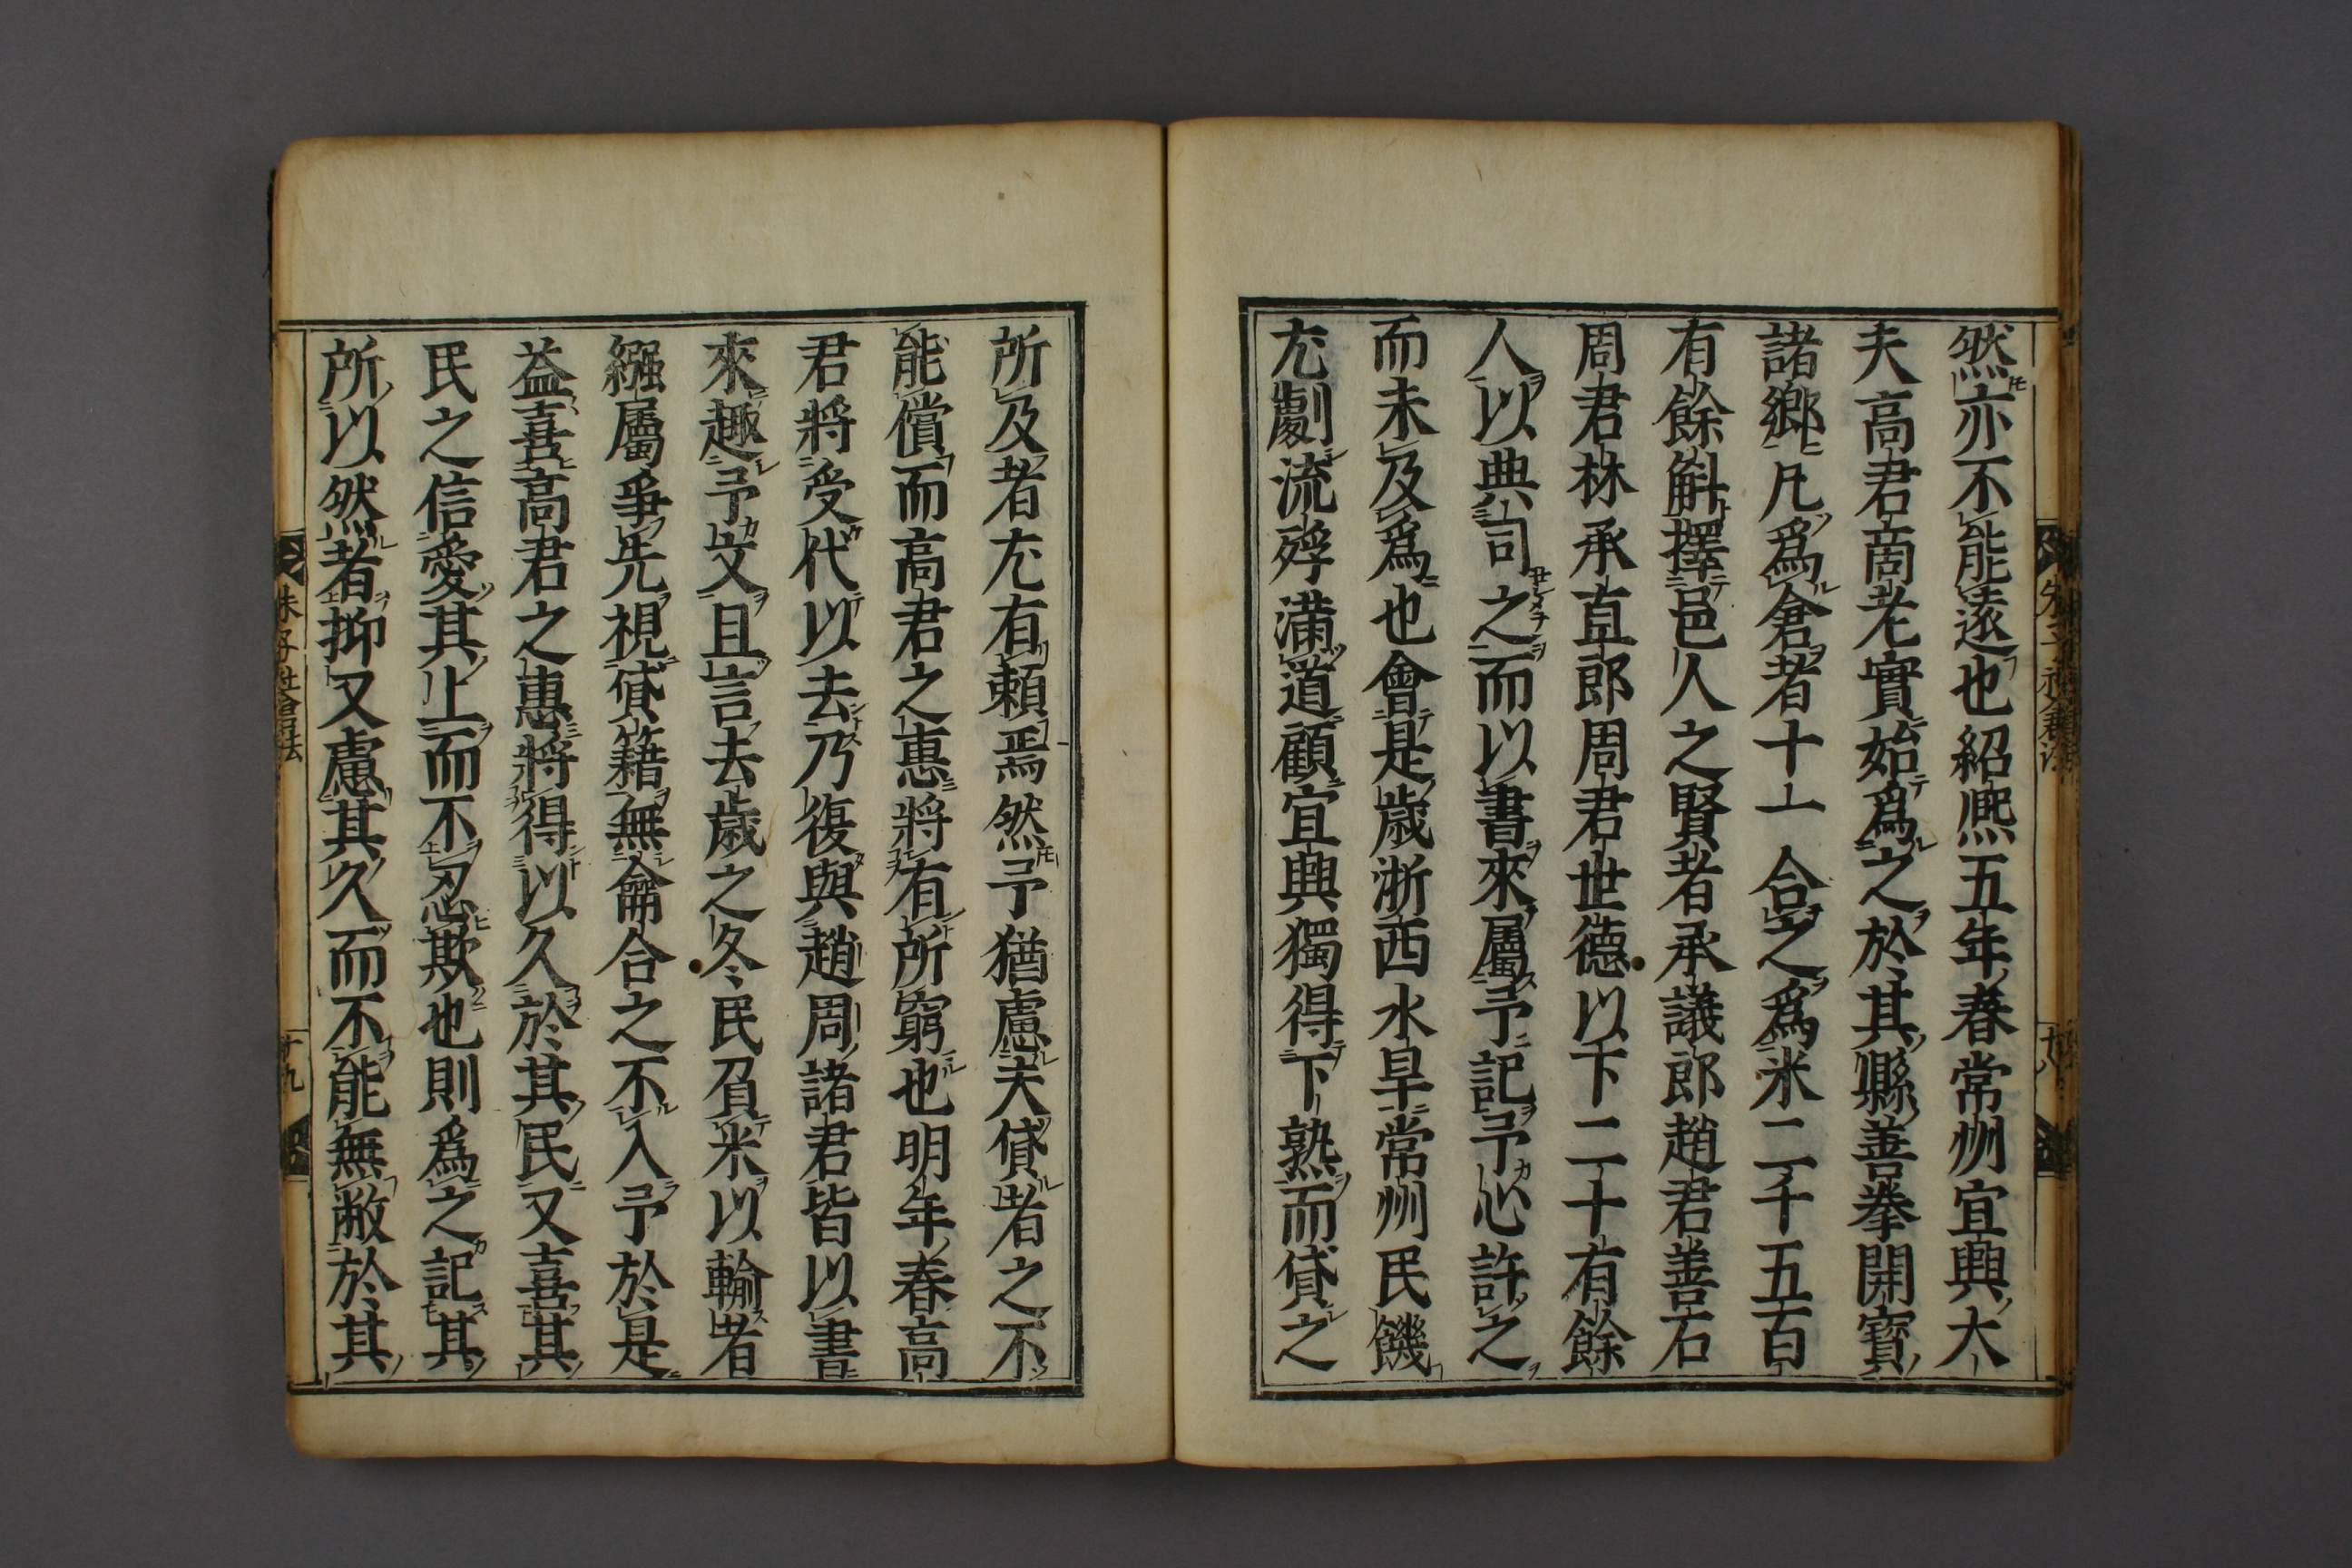 然亦不能遠也紹熈五年春常州宜興大
夫高君啇老實始爲之於其縣善拳開寳
諸郷凡爲倉者十一合之爲米二千五百
有餘斛擇邑人之賢者承議郎趙君善石
周君林承直郎周君世德以下二十有餘
人以典司之而以書來屬予記予心許之
而未及爲也會是歳浙西水旱常州民饑
尤劇流殍滿道顧宜興獨得下熟而貸之
所及者尤有賴焉然予猶慮夫貸者之不
能償而高君之惠將有所窮也明年春高
君將受代以去乃復與趙周諸君皆以書
來趣予文且言去歳之冬民負米以輸者
繦屬爭先視貸籍無龠合之不入予於是
益喜高君之惠將得以久於其民又喜其
民之信愛其上而不忍欺也則爲之記其
所以然者抑又慮其久而不能無敝於其
朱子社倉法
十八
朱子社倉法
十九